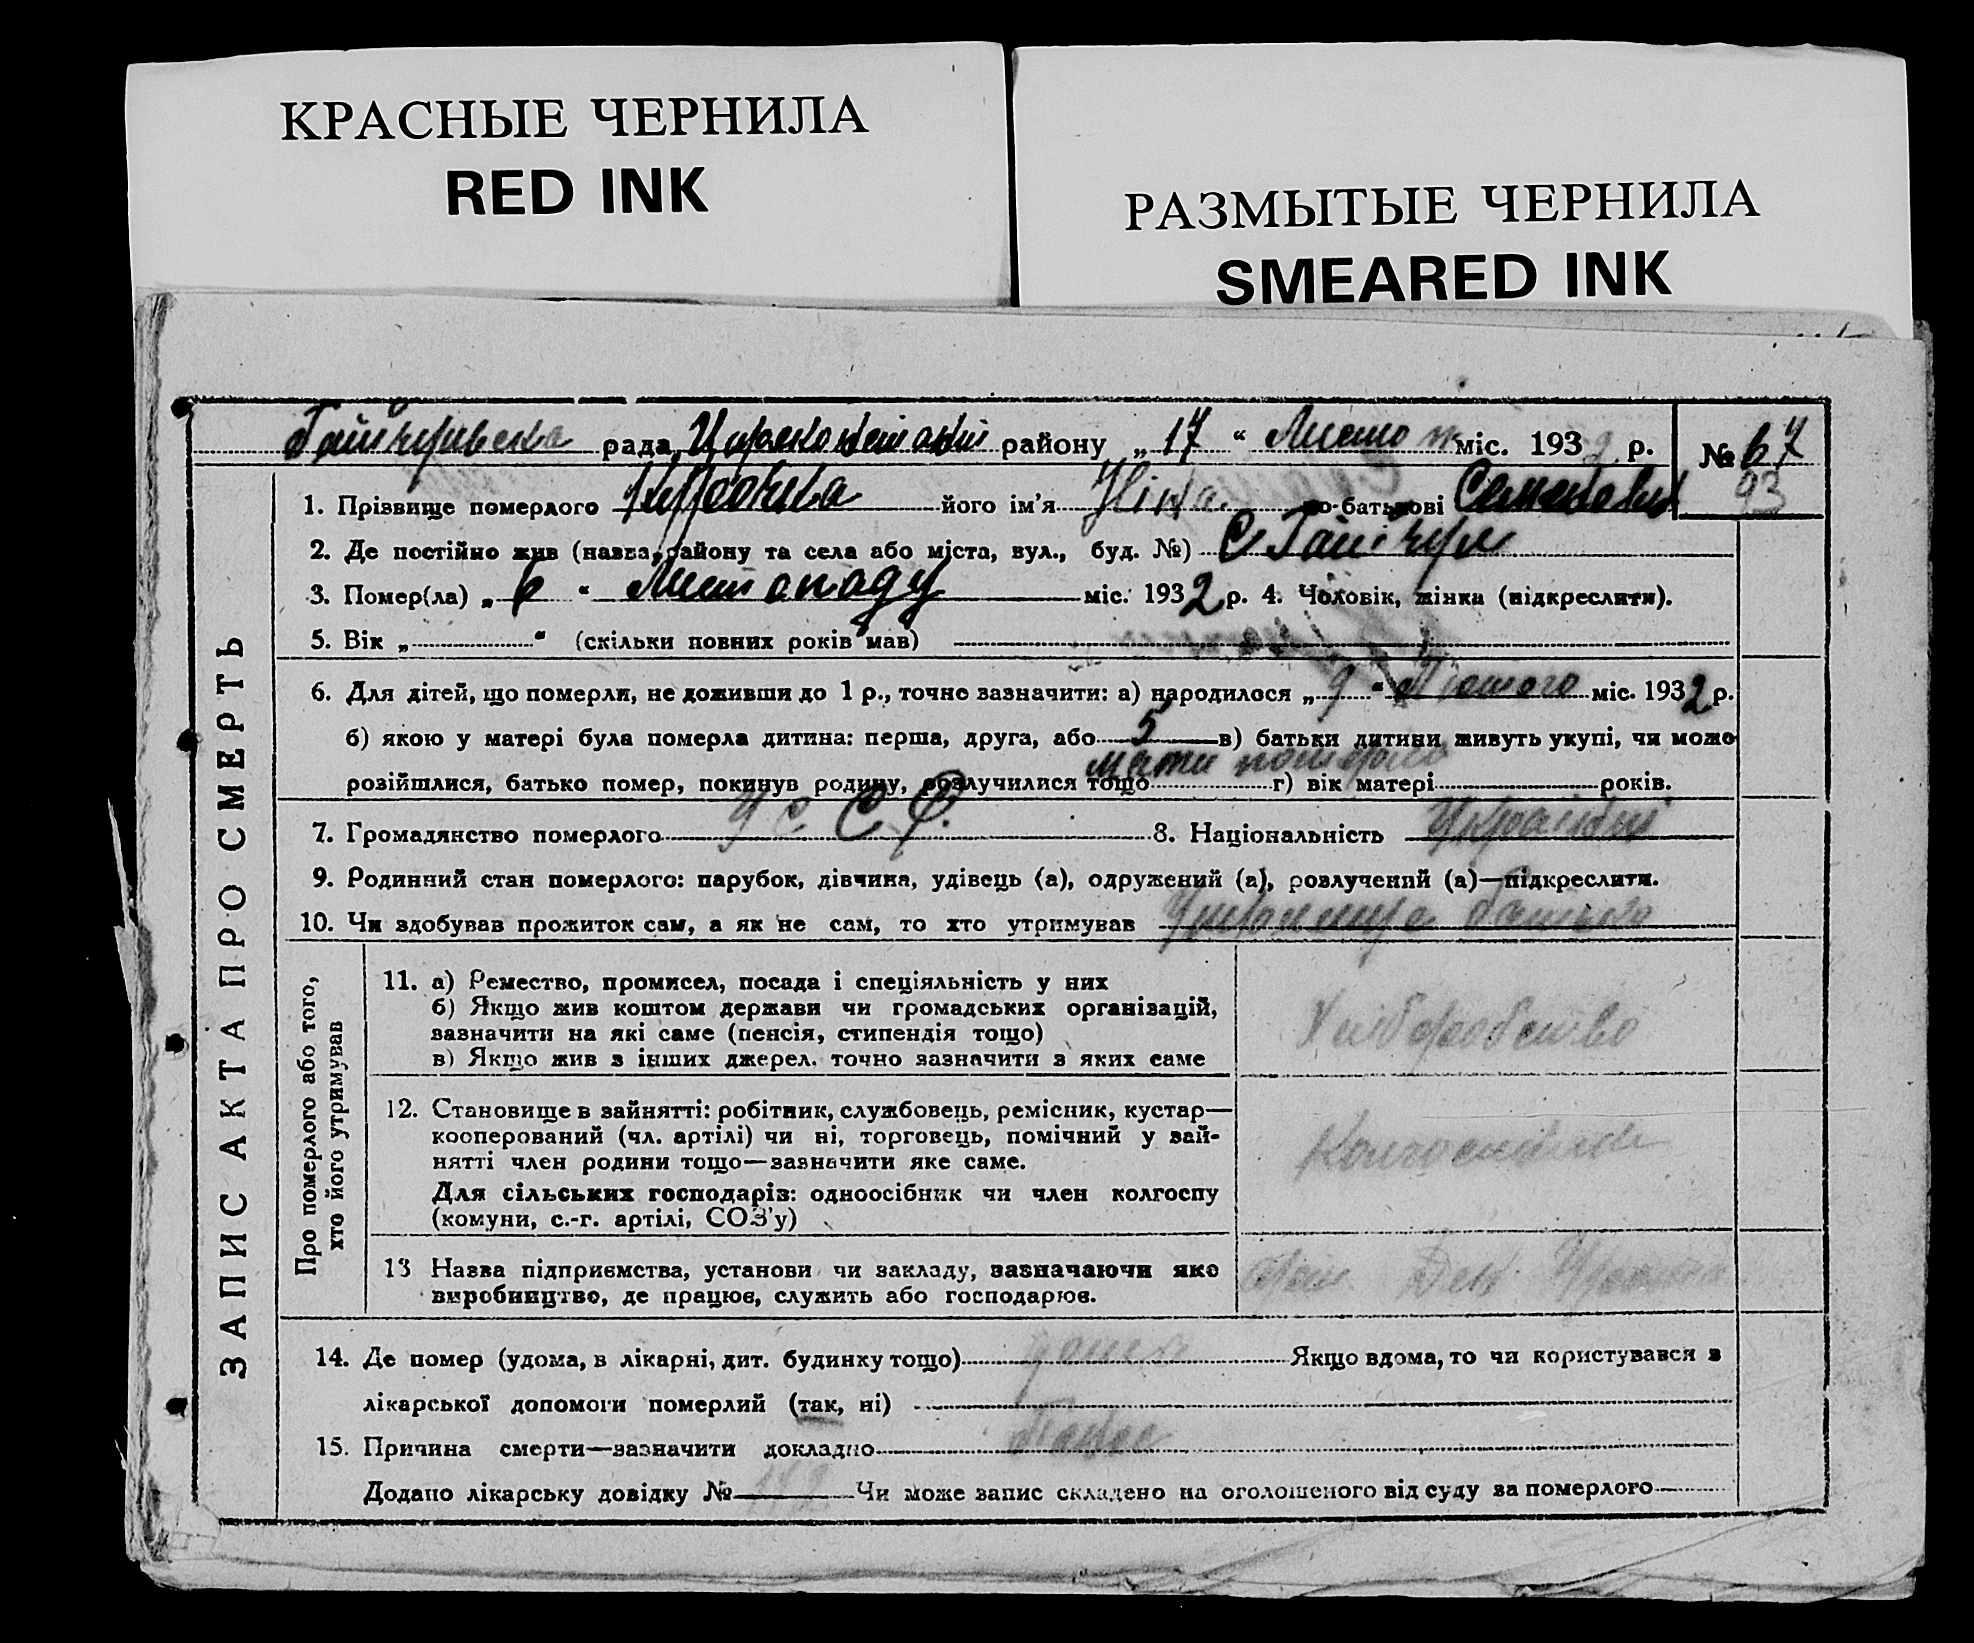 КРАСНЫЕ ЧЕРНИЛА
RED INK
РАЗМЫТЫЕ ЧЕРНИЛА
SMEARED INK
рада району „ 17 “ міс. 193 р. № 67
93
1. Прізвище померлого його ім'я Ніна по-батькові
2. Де постійно жив (назва району та села або міста, вул., буд. №) с
3. Помер(ла) „ 6 “ Листопаду міс. 1932 р. 4. Чоловік, жінка (підкреслити).
5. Вік „ “ (скільки повних років мав)
6. Для дітей, що померли, не доживши до 1 р., точно зазначити: а) народилося „ 9 “ Лютого міс. 1932 р.
б) якою у матері була померла дитина: перша, друга, або 5 в) батьки дитини живуть укупі, чи може
розійшлися, батько помер, покинув родину, розлучилися тощо мати померла г) вік матері років.
7. Громадянство померлого У С С Р. 8. Національність
9. Родинний стан померлого: парубок, дівчина, удівець (а), одружений (а), розлучений (а)—підкреслити.
10. Чи здобував прожиток сам, а як не сам, то хто утримував батько
ЗАПИС АКТА ПРО СМЕРТЬ
Про померлого або того,
хто його утримував
11. а) Ремество, промисел, посада і спеціяльність у них
б) Якщо жив коштом держави чи громадських організацій,
зазначити на які саме (пенсія, стипендія тощо)
в) Якщо жив з інших джерел, точно зазначити з яких саме
Хліборобство
12. Становище в зайнятті: робітник, службовець, ремісник, кустар—
кооперований (чл. артілі) чи ні, торговець, помічний у зай-
нятті член родини тощо—зазначити яке саме.
Для сільських господарів: одноосібник чи член колгоспу
(комуни, с.-г. артілі, СОЗ'у)
Колгоспник
13 Назва підприємства, установи чи закладу, зазначаючи яке
виробництво, де працює, служить або господарює.
14. Де помер (удома, в лікарні, дит. будинку тощо) дома Якщо вдома, то чи користувався з
лікарської допомоги померлий (так, ні)
15. Причина смерти—зазначити докладно
Додано лікарську довідку № Чи може запис складено на оголошеного від суду за померлого